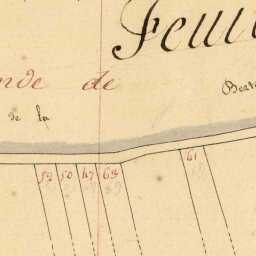 Feuil
nde de
Beat
de la
52 50 47 63 61